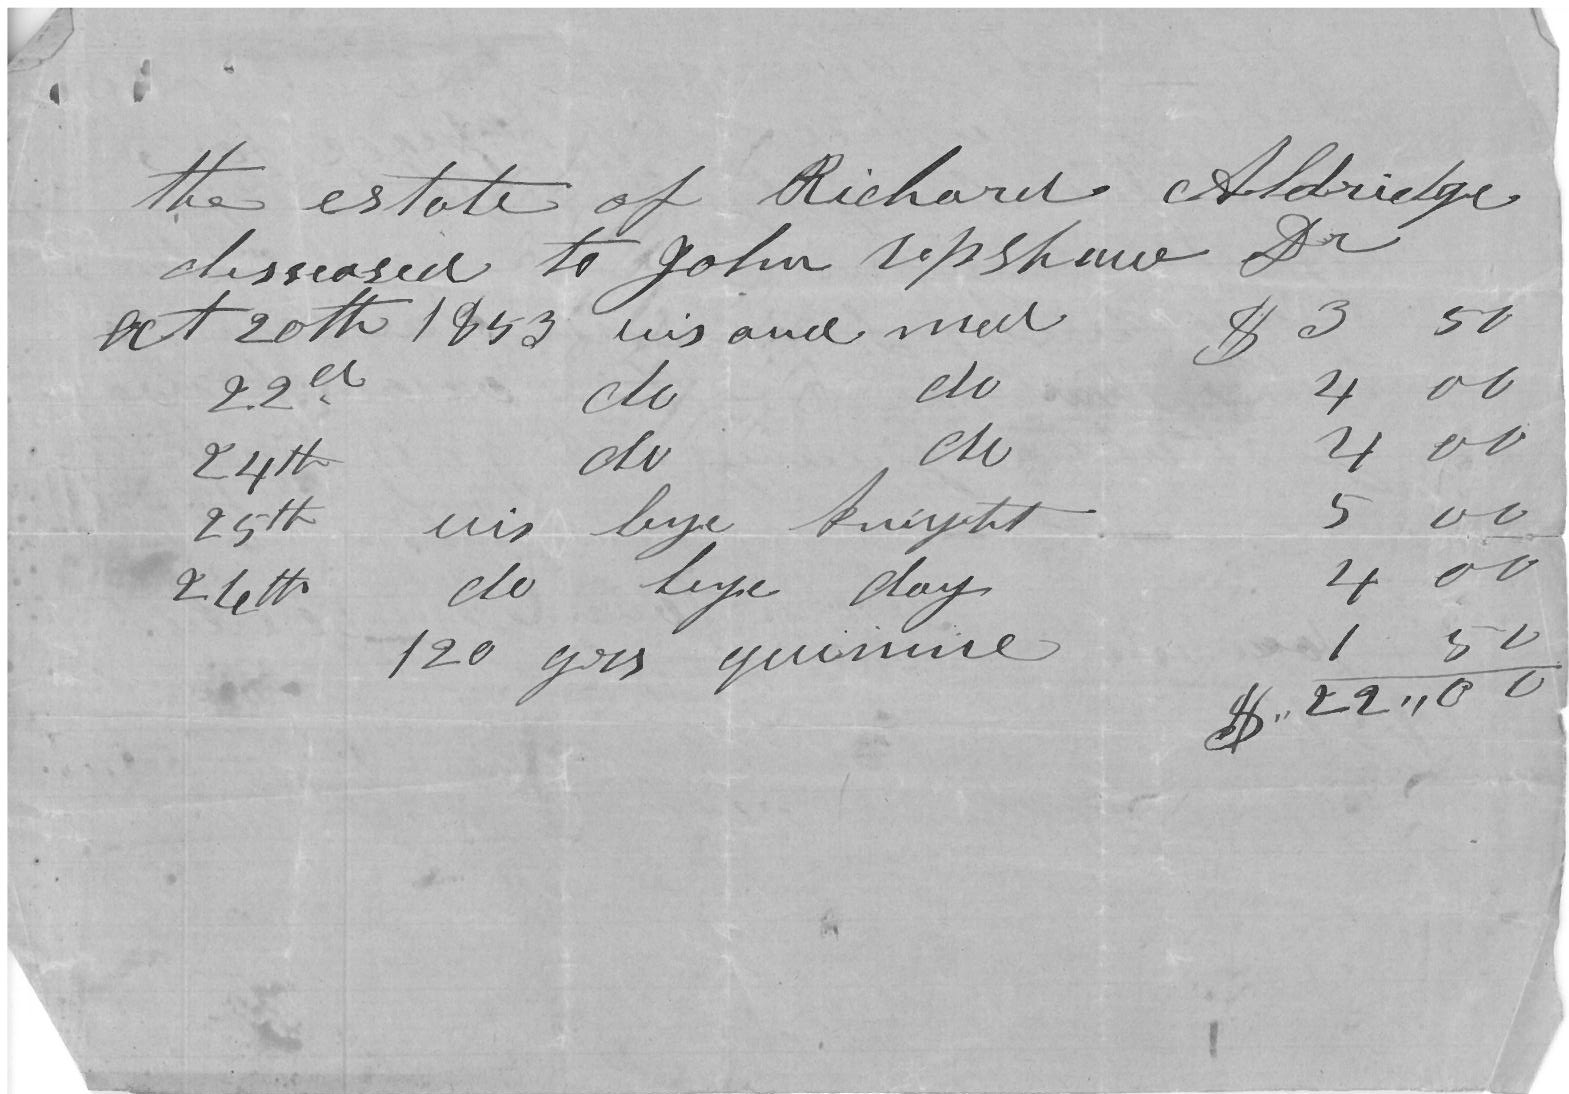 the estate of Richard Aldridge
disseased to John Upshaw Dr
Oct 20th 1853 vis and med $ 3 50
22d do do 4 00
24th do do 4 00
25th vis bye knight 5 00
26th do bye day 4 00
120 grs quinine 1 50
$ " 22 " 00